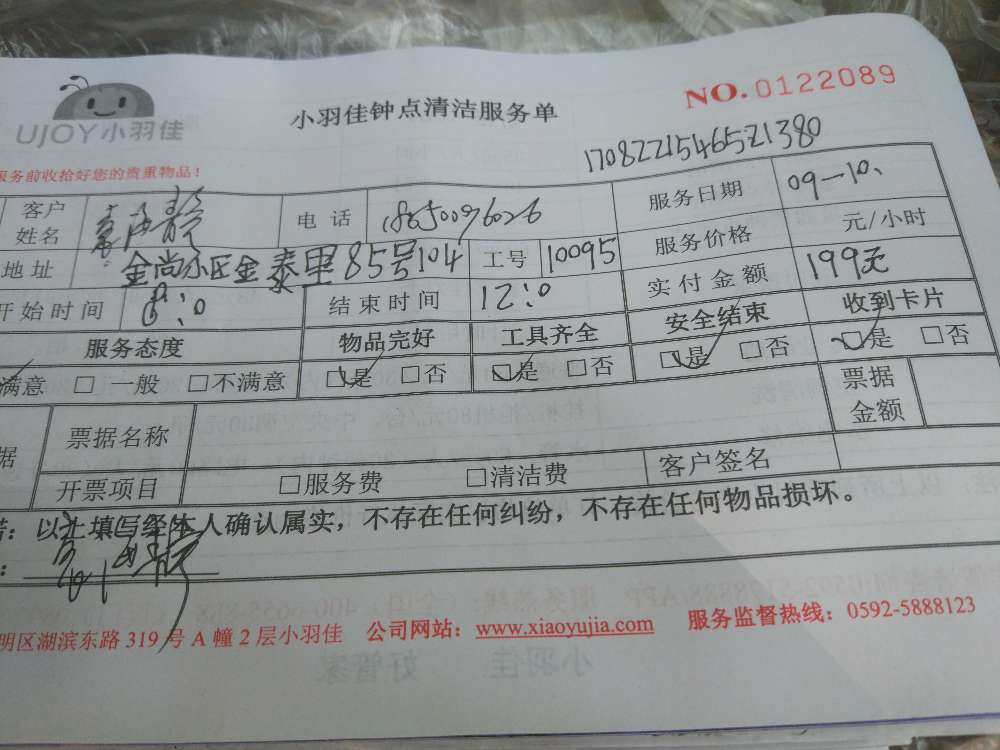 UJOY小羽佳
小羽佳钟点清洁服务单
NO.0122089
1708221546521380
服务前收拾好您的贵重物品!
客户姓名 电话 18650096026 服务日期 09-10.
地址 金尚小区金泰里85号104 工号 10095 服务价格 元/小时
开始时间 8:0 结束时间 12:0 实付金额 199元
服务态度 物品完好 工具齐全 安全结束 收到卡片
满意 □ 一般 □不满意 □是 □否 □是 □否 □是 □否 □是 □否
据 票据名称 票据金额
开票项目 □服务费 □清洁费 客户签名
: 以上填写经本人确认属实，不存在任何纠纷，不存在任何物品损坏。
明区湖滨东路 319 号 A 幢 2 层小羽佳 公司网站：www.xiaoyujia.com 服务监督热线：0592-5888123